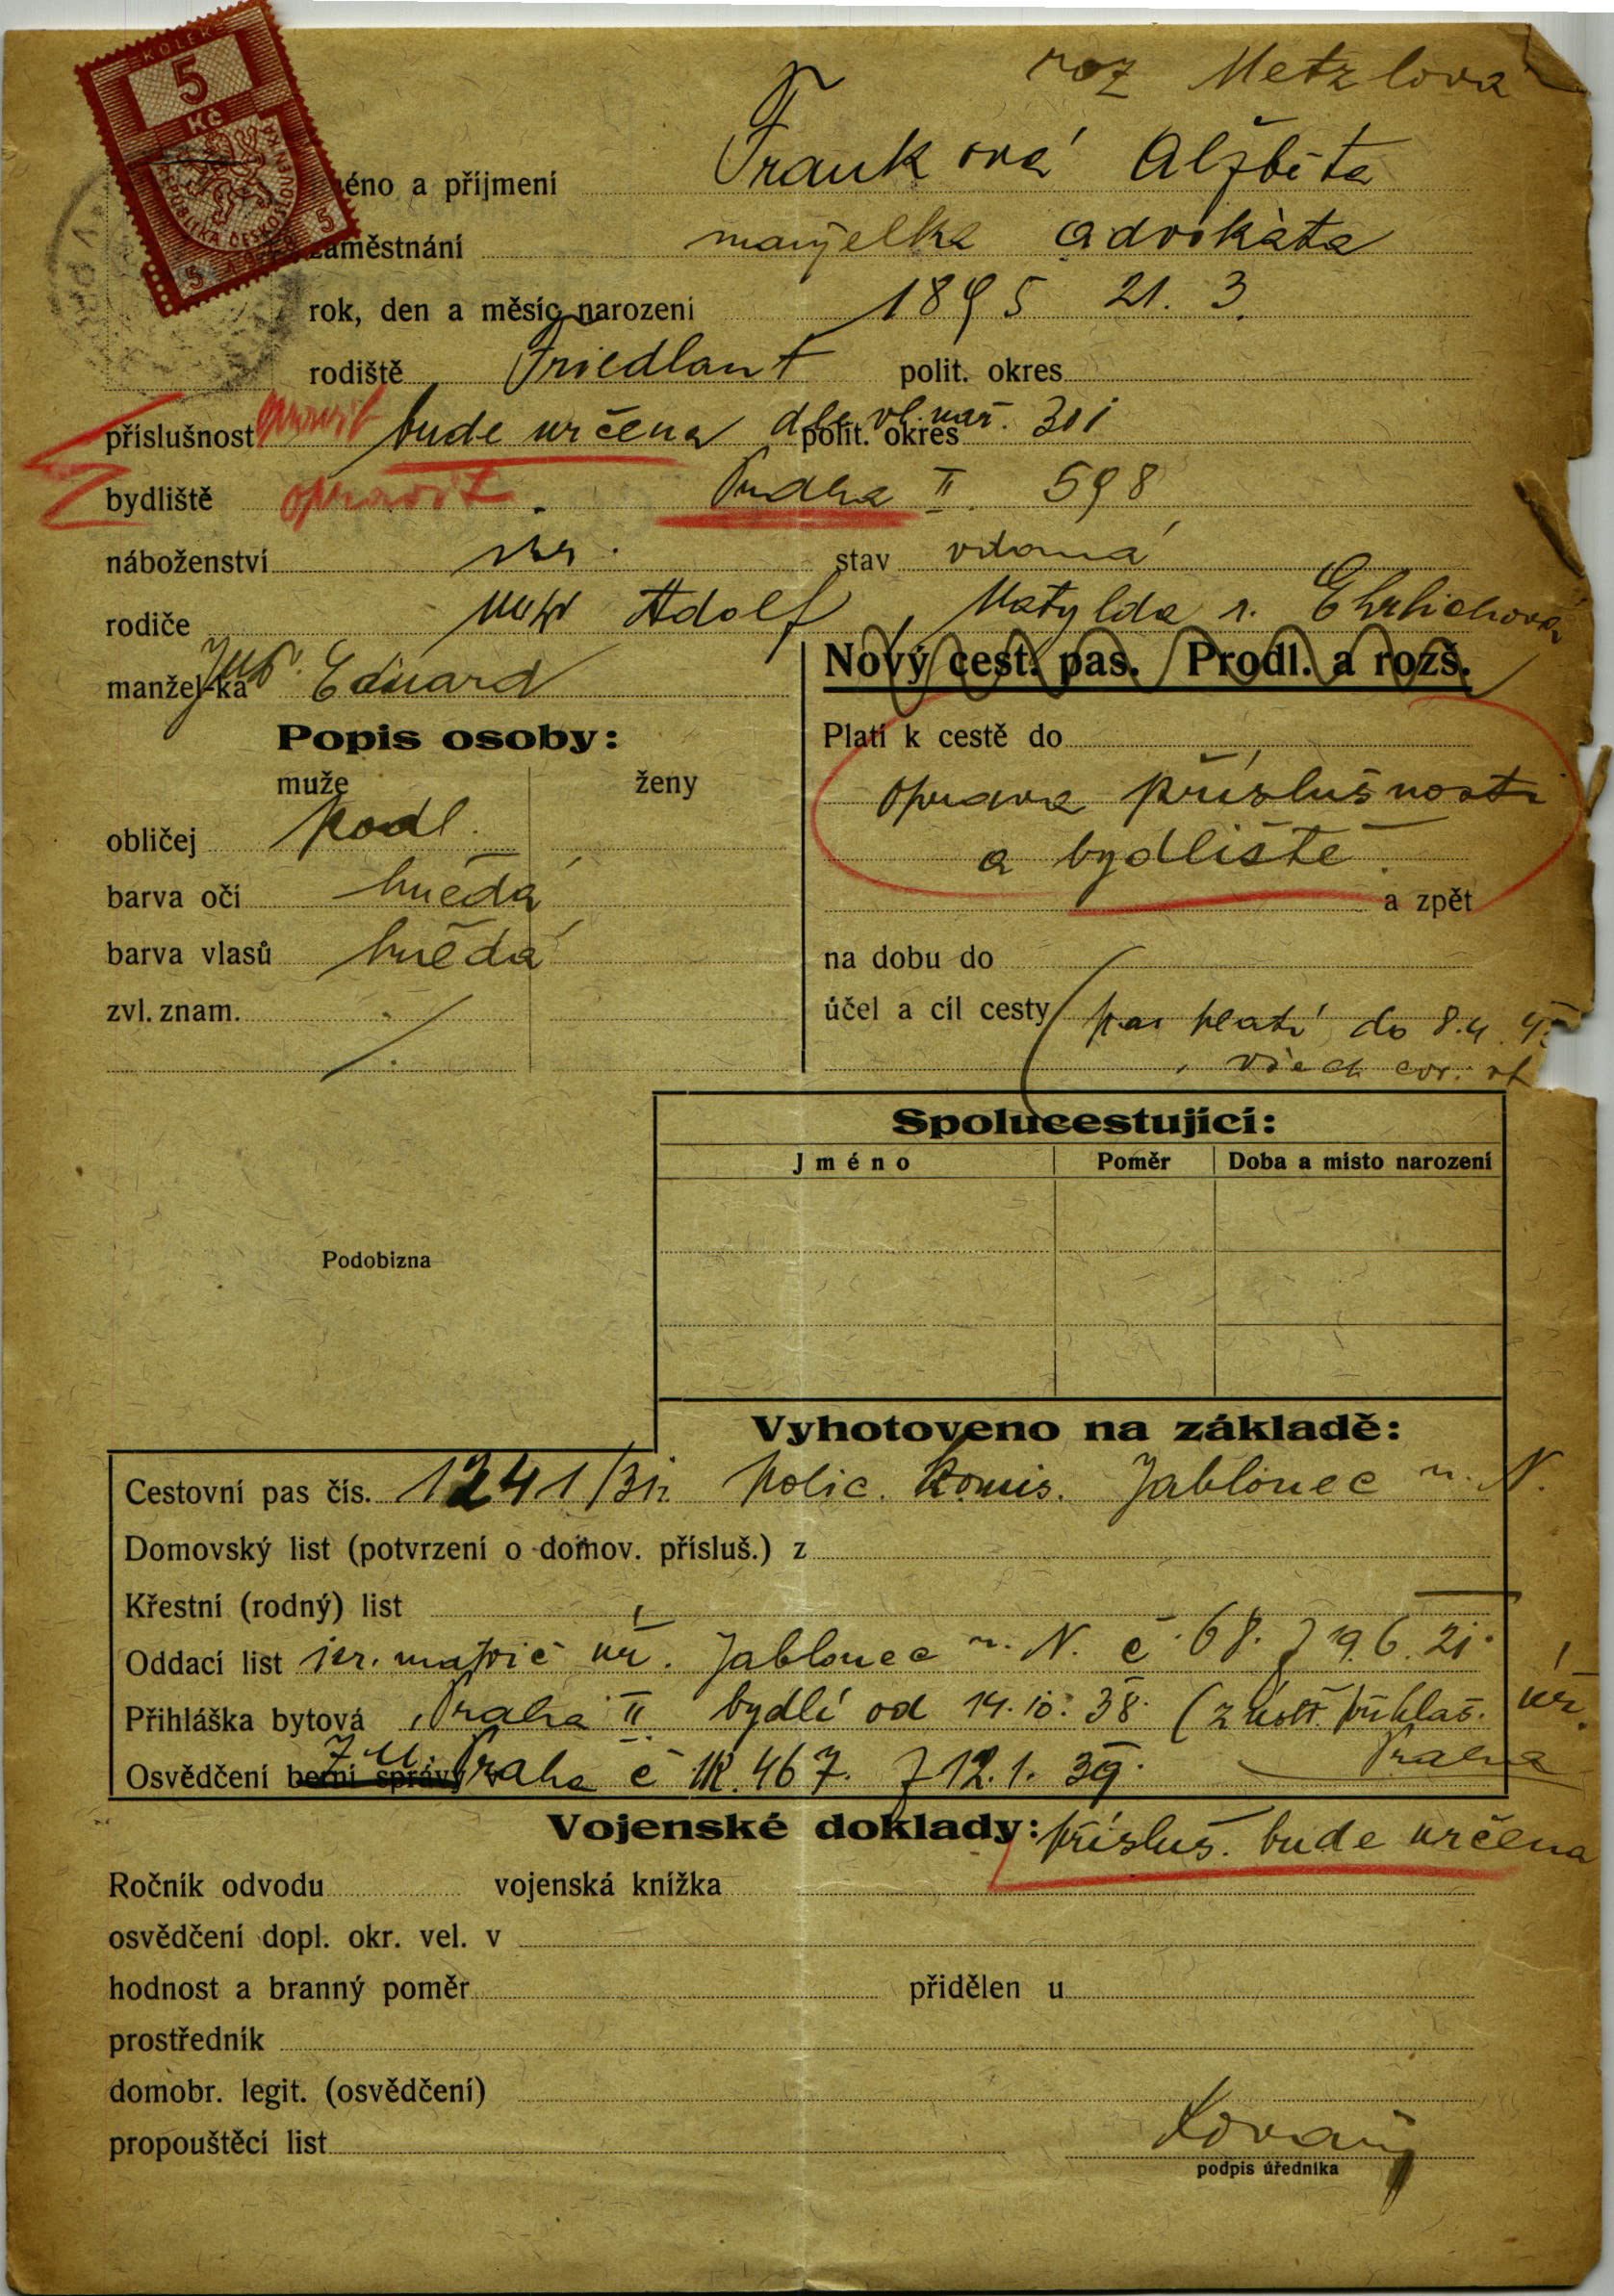 roz Metzlova
KOLEK
5
Kč
REPUBLIKA ČESKOSLOVENSKÁ
5 5
méno a příjmení Franková Alžběta
zaměstnání manželka advokáta
rok, den a měsíc narození 1895 21. 3.
rodiště Friedlant polit. okres
příslušnost opravit bude určena dle vl. nař. 301 polit. okres
bydliště opravit Praha II 598
náboženství isr. stav vdaná
rodiče Adolf, Matylda r. Ehrlichová
manžel-ka JUDr. Eduard
Nový cest. pas. Prodl. a rozš.
Popis osoby:
muže ženy
obličej podl.
barva očí hnědá
barva vlasů hnědá
zvl. znam.
Platí k cestě do
oprava příslušnosti
a bydliště
a zpět
na dobu do
účel a cíl cesty pas platí do 8.4.
všech evr. st
Spolucestující:
Jméno Poměr Doba a místo narození
Podobizna
Vyhotoveno na základě:
Cestovní pas čís. 1241/ polic. komis. Jablonec n. N.
Domovský list (potvrzení o domov. přísluš.) z
Křestní (rodný) list
Oddací list isr. matrič úř. Jablonec n. N. č 68. z 19.6.21.
Přihláška bytová Praha II. bydlí od 14.10.38. (z úst. přihlaš. úř.
Praha
Osvědčení berní správy v Z.U. Praha č 467. z 12.1.39.
Vojenské doklady: přísluš. bude určena
Ročník odvodu vojenská knížka
osvědčení dopl. okr. vel. v
hodnost a branný poměr přidělen u
prostředník
domobr. legit. (osvědčení)
propouštěcí list
podpis úředníka